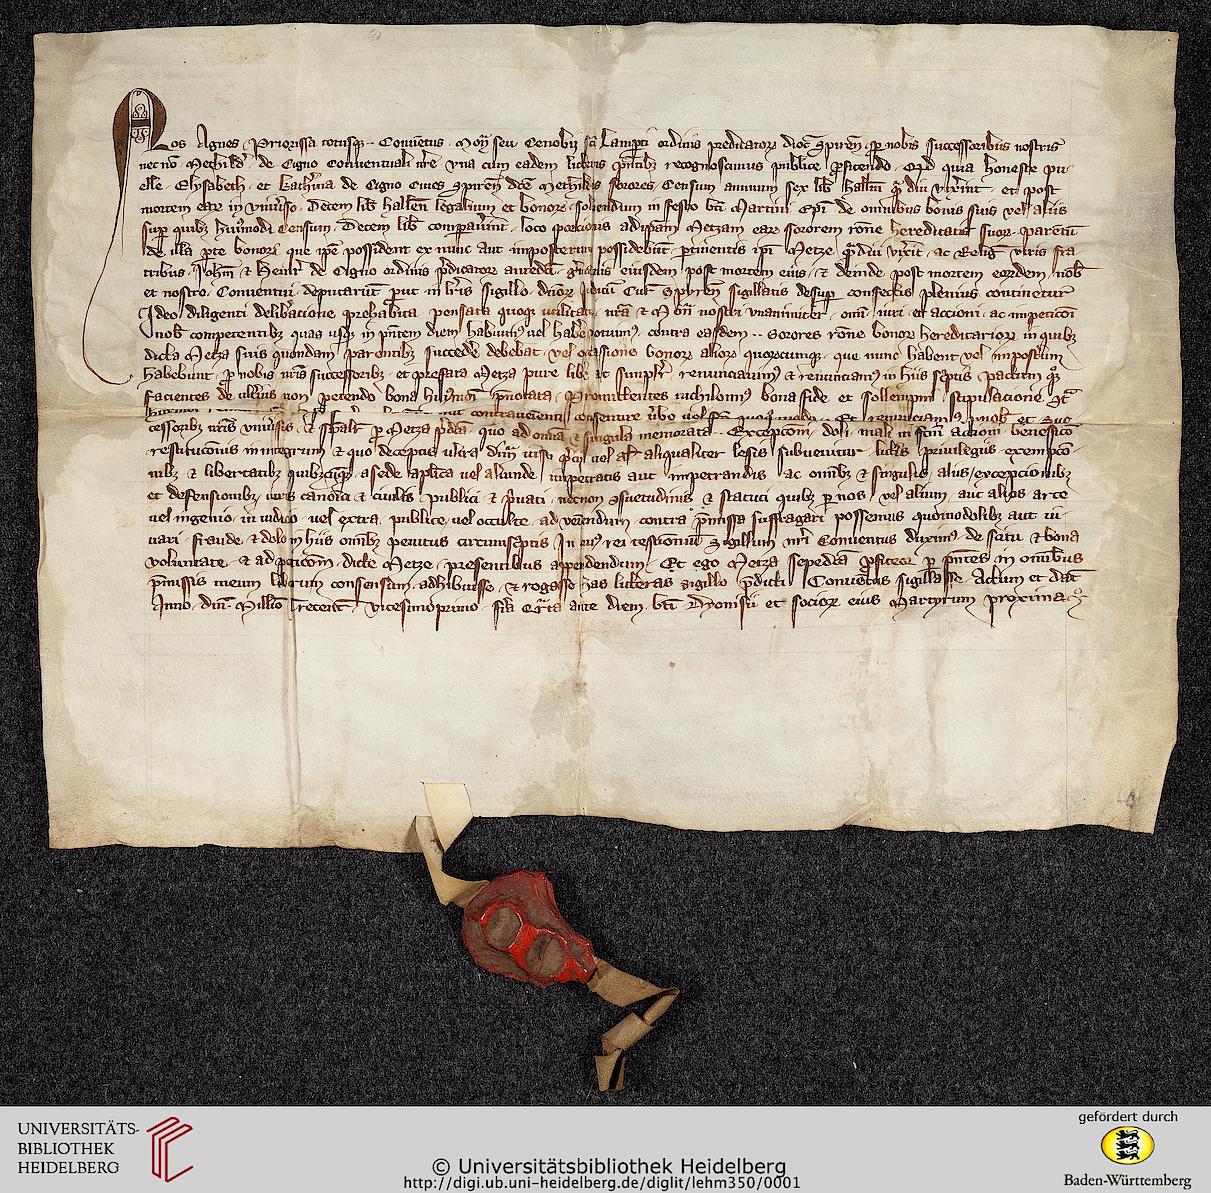 Nos Agnes Priorissa totusq. Conuetus Mon seu Cenobij sci Lamperti ordinis predicatorz dioc Spiren pro nobis successoribus nostris
nec no Methild de Cigno Conuentuali nre vna cum eadem litteris pntibz recognoscimus publice profitendo Qd quia honeste pu-
elle Elisabeth et Kathina de Cigno Ciues Spiren dce Methildis sorores Censum annuum sex lib hallen qdiu vixerint et post
mortem earz in vniuerso Decem lib hallen legalium et bonorz soluendum in festo bti Martini Epi de omnibus bonis suis vel aliis
sup quibz huiusmodi Censum Decem lib comparauerint loco porcionis ad ipsam Metzam earz sororem rone hereditatis suorz parentum
de illa pte bonorz que ipe possident ex nunc aut imposterum possidebunt ptinentis ipi Metze qdiu vixerit ac Relig viris fra
tribus Johni et Heinr de Cigno ordinis pdicatorz antedci germanis eiusdem post mortem eius et deinde post mortem eorzdem nob
et nostro Conuentui deputarunt put in lris sigillo dnorz Judicum Cur Spiren sigillatis desup confectis plenius continetur
Ideo diligenti deliberatione prehabita pensata quoq. utilitate nra et Mon nostri vnanimiter omi iuri et accioni ac impeticoi
nob competentibz quas usq. in pntem diem habuimus vel habere potuimus contra easdem sorores rone bonorz hereditariorz in quibz
dicta Metza suis quondam parentibz succedere debebat vel occasione bonorz aliorz quorzcumqz que nunc habent vel imposterum
habebunt pro nobis nris successoribz et prefata Metza pure libere et simplr renunciauimus et renunciamus in hiis scriptis pactum
facientes de vlterius non petendo bona huiusmodi prenotata Promittentes nichilominus bona fide et sollempni stipulacione
contrauenienti consentire verbo vel
cessoribz nris vniuersis et specialr pro Metza pdca quo ad omnia et singula memorata Excepcom doli mali in fcm actioni beneficio
restitucois in integrum et quo deceptis ultra dimidium iusti precij vel als aliqualiter lesis subuenitur litteris priuilegiis exempco-
nibz et libertatibz quibzcumq. a sede aplica vel aliunde impetratis aut impetrandis ac omibz et singulis aliis excepcionibz
et defensionibz iuris canonici et ciuilis publici et priuati necnon consuetudinis et statuti quibz per nos vel alium aut alios arte
vel ingenio in iudicio vel extra publice vel occulte ad veniendum contra pmissa suffragari possemus quomodolibz aut iu-
uari fraude et dolo in hiis omibz penitus circumscriptis In cuius rei testimonium Sigillum nri Conuentus duximus de scitu et bona
voluntate et ad peticoem dicte Metze presentibus appendendum Et ego Metza sepedca profiteor per pntes in omibus
pmissis meum liberum consensum adhibuisse et rogasse has litteras sigillo pdicti Conuentus sigillasse Actum et dat
Anno Dni Millio Trecent vicesimo primo fia Qrta ante diem bti Dyonisii et sociorz eius Martyrum proxima
UNIVERSITÄTS-
BIBLIOTHEK
HEIDELBERG
© Universitätsbibliothek Heidelberg
http://digi.ub.uni-heidelberg.de/diglit/lehm350/0001
gefördert durch
Baden-Württemberg